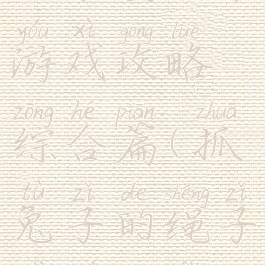 yóu xì gōng lüè
游戏攻略
zōng hé piān zhuā
综合篇(抓
tù zǐ de shéng zǐ
兔子的绳子